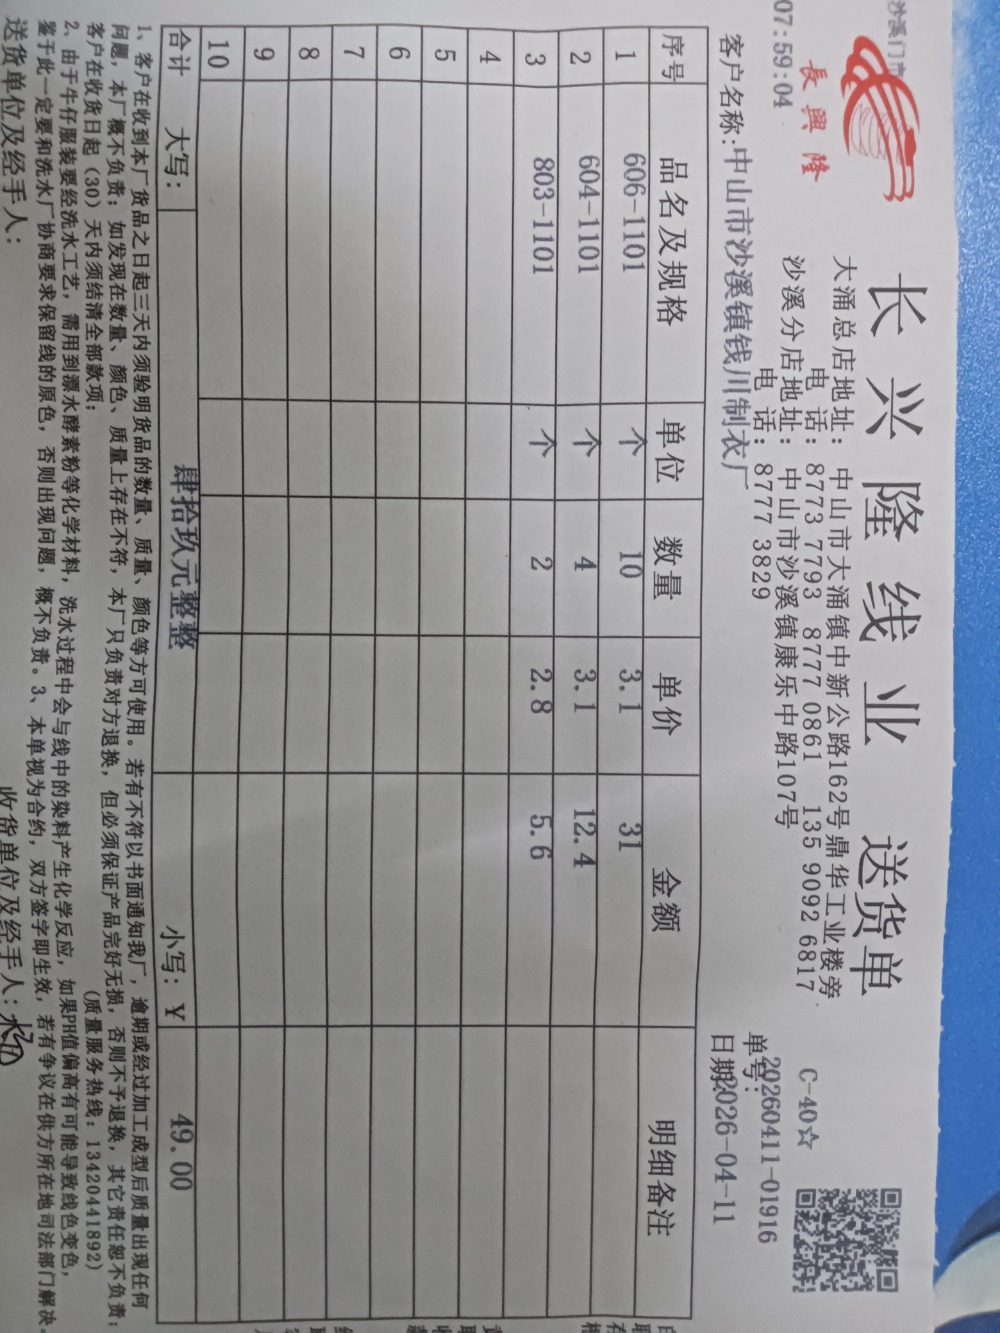 沙溪门市
07:59:04
長興隆
长兴隆线业 送货单
大涌总店地址: 中山市大涌镇中新公路162号鼎华工业楼旁
电 话: 8773 7793 8777 0861 135 9092 6817
沙溪分店地址: 中山市沙溪镇康乐中路107号
电 话: 8777 3829
C-40☆
单号: 20260411-01916
日期: 2026-04-11
客户名称: 中山市沙溪镇钱川制衣厂
序号 品名及规格 单位 数量 单价 金额 明细备注
1 606-1101 个 10 3.1 31
2 604-1101 个 4 3.1 12.4
3 803-1101 个 2 2.8 5.6
4
5
6
7
8
9
10
合计 大写: 肆拾玖元整整 小写: ¥ 49.00
1、客户在收到本厂货品之日起三天内须验明货品的数量、质量、颜色等方可使用。若有不符以书面通知我厂,逾期或经过加工成型后质量出现任何
问题,本厂概不负责;如发现在数量、颜色、质量上存在不符,本厂只负责对方退换,但必须保证产品完好无损,否则不予退换,其它责任恕不负责;
客户在收货日起(30)天内须结清全部款项; (质量服务热线:13420441892)
2、由于牛仔服装要经洗水工艺,需用到漂水酵素粉等化学材料,洗水过程中会与线中的染料产生化学反应,如果PH值偏高有可能导致线色变色,
鉴于此一定要和洗水厂协商要求保留线的原色,否则出现问题,概不负责。3、本单视为合约,双方签字即生效,若有争议在供方所在地司法部门解决。
送货单位及经手人: 收货单位及经手人: